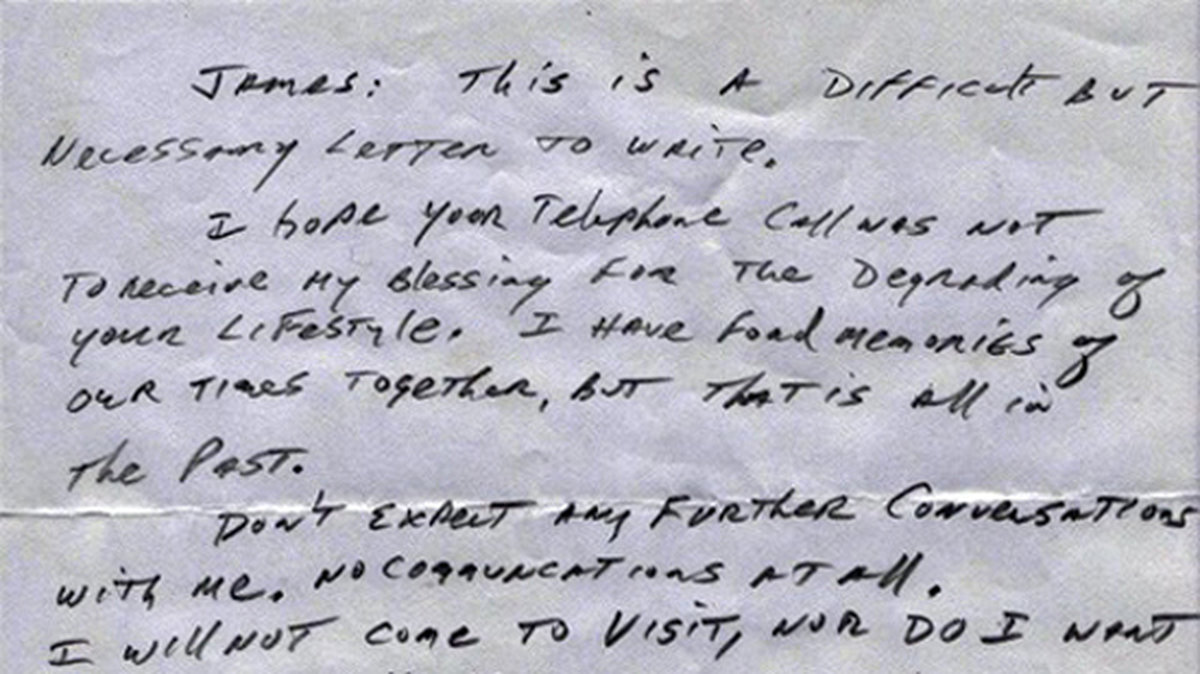 James: This is a Difficult But
Necessary Letter to write.
I hope your Telephone Call was not
To receive my Blessing for the Degrading of
your Lifestyle. I have fond memories of
our times together, But that is all in
the Past.
Don't expect any further Conversations
with me. No Communcations at all.
I will not come to visit, nor do I want